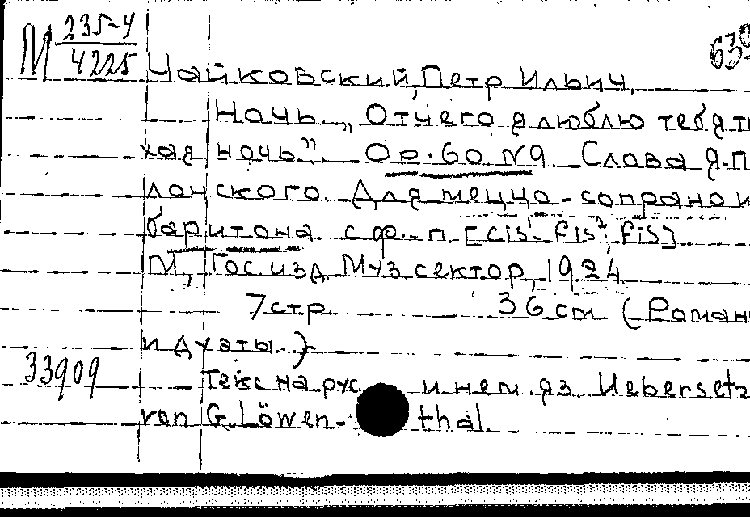 М 235-4 / 4225
639
Чайковский, Петр Ильич.
Ночь. „Отчего я люблю тебя ти
хая ночь". Op. 60. №9. Слова Я. П
лонского. Для меццо-сопрано и
баритона с ф.-п. [cis¹-fis², fis]
М., Гос. изд. Муз сектор, 1924
7 стр. 36 cm (Роман
и дуэты.)
33909
Текс на рус и нем. яз. Uebersetz
von G. Löwen- thal.